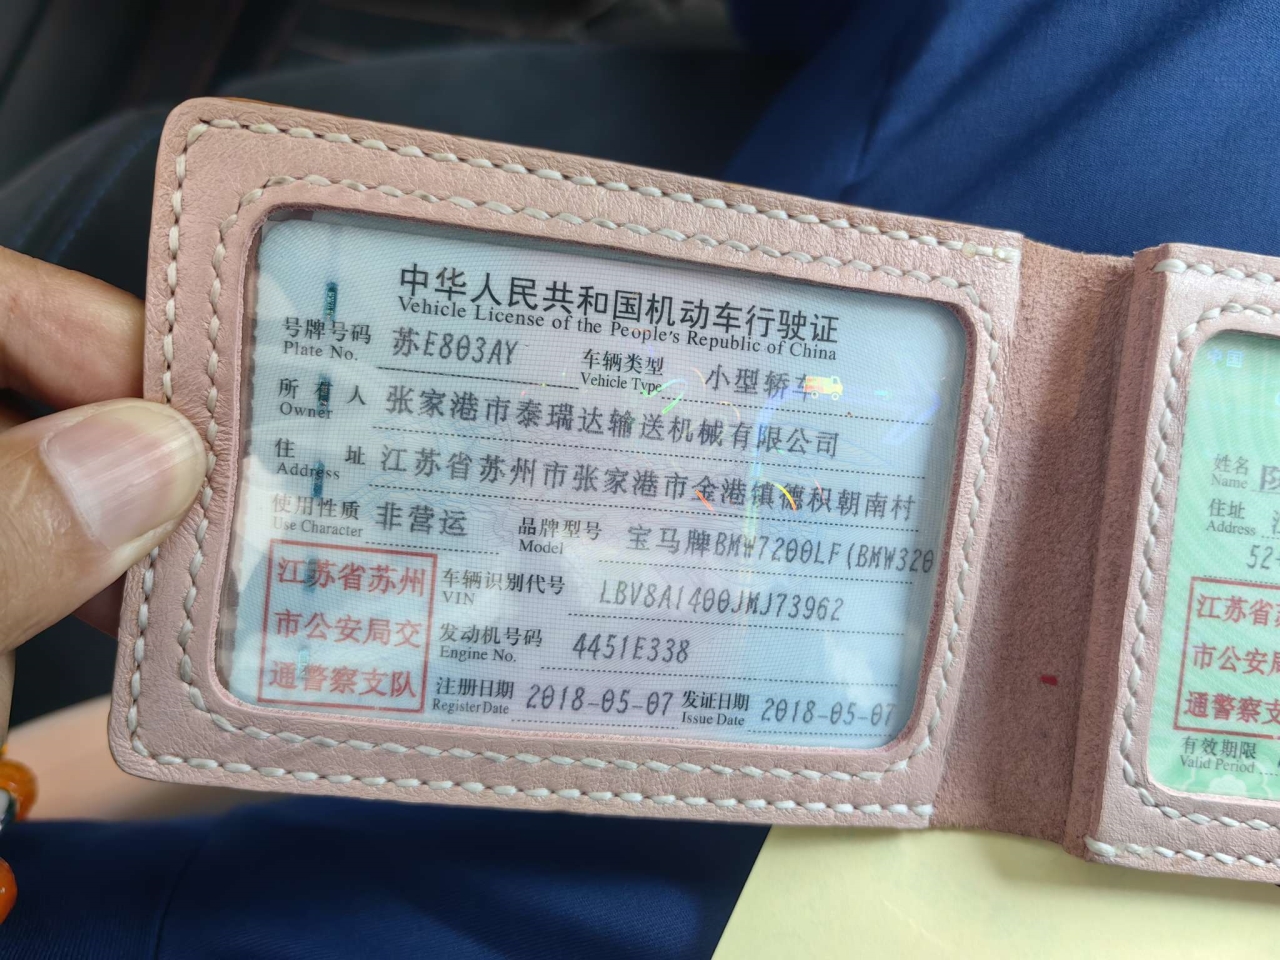 中华人民共和国机动车行驶证
Vehicle License of the People's Republic of China
号牌号码 苏E803AY 车辆类型 小型轿车
Plate No. Vehicle Type
所有人 张家港市泰瑞达输送机械有限公司
Owner
住址 江苏省苏州市张家港市金港镇德积朝南村
Address
使用性质 非营运 品牌型号 宝马牌BMW7200LF(BMW320
Use Character Model
江苏省苏州
市公安局交
通警察支队
车辆识别代号 LBV8A1400JMJ73962
VIN
发动机号码 4451E338
Engine No.
注册日期 2018-05-07 发证日期 2018-05-07
Register Date Issue Date
中国
姓名
Name
住址
Address
52
江苏省
市公安局
通警察支
有效期限
Valid Period